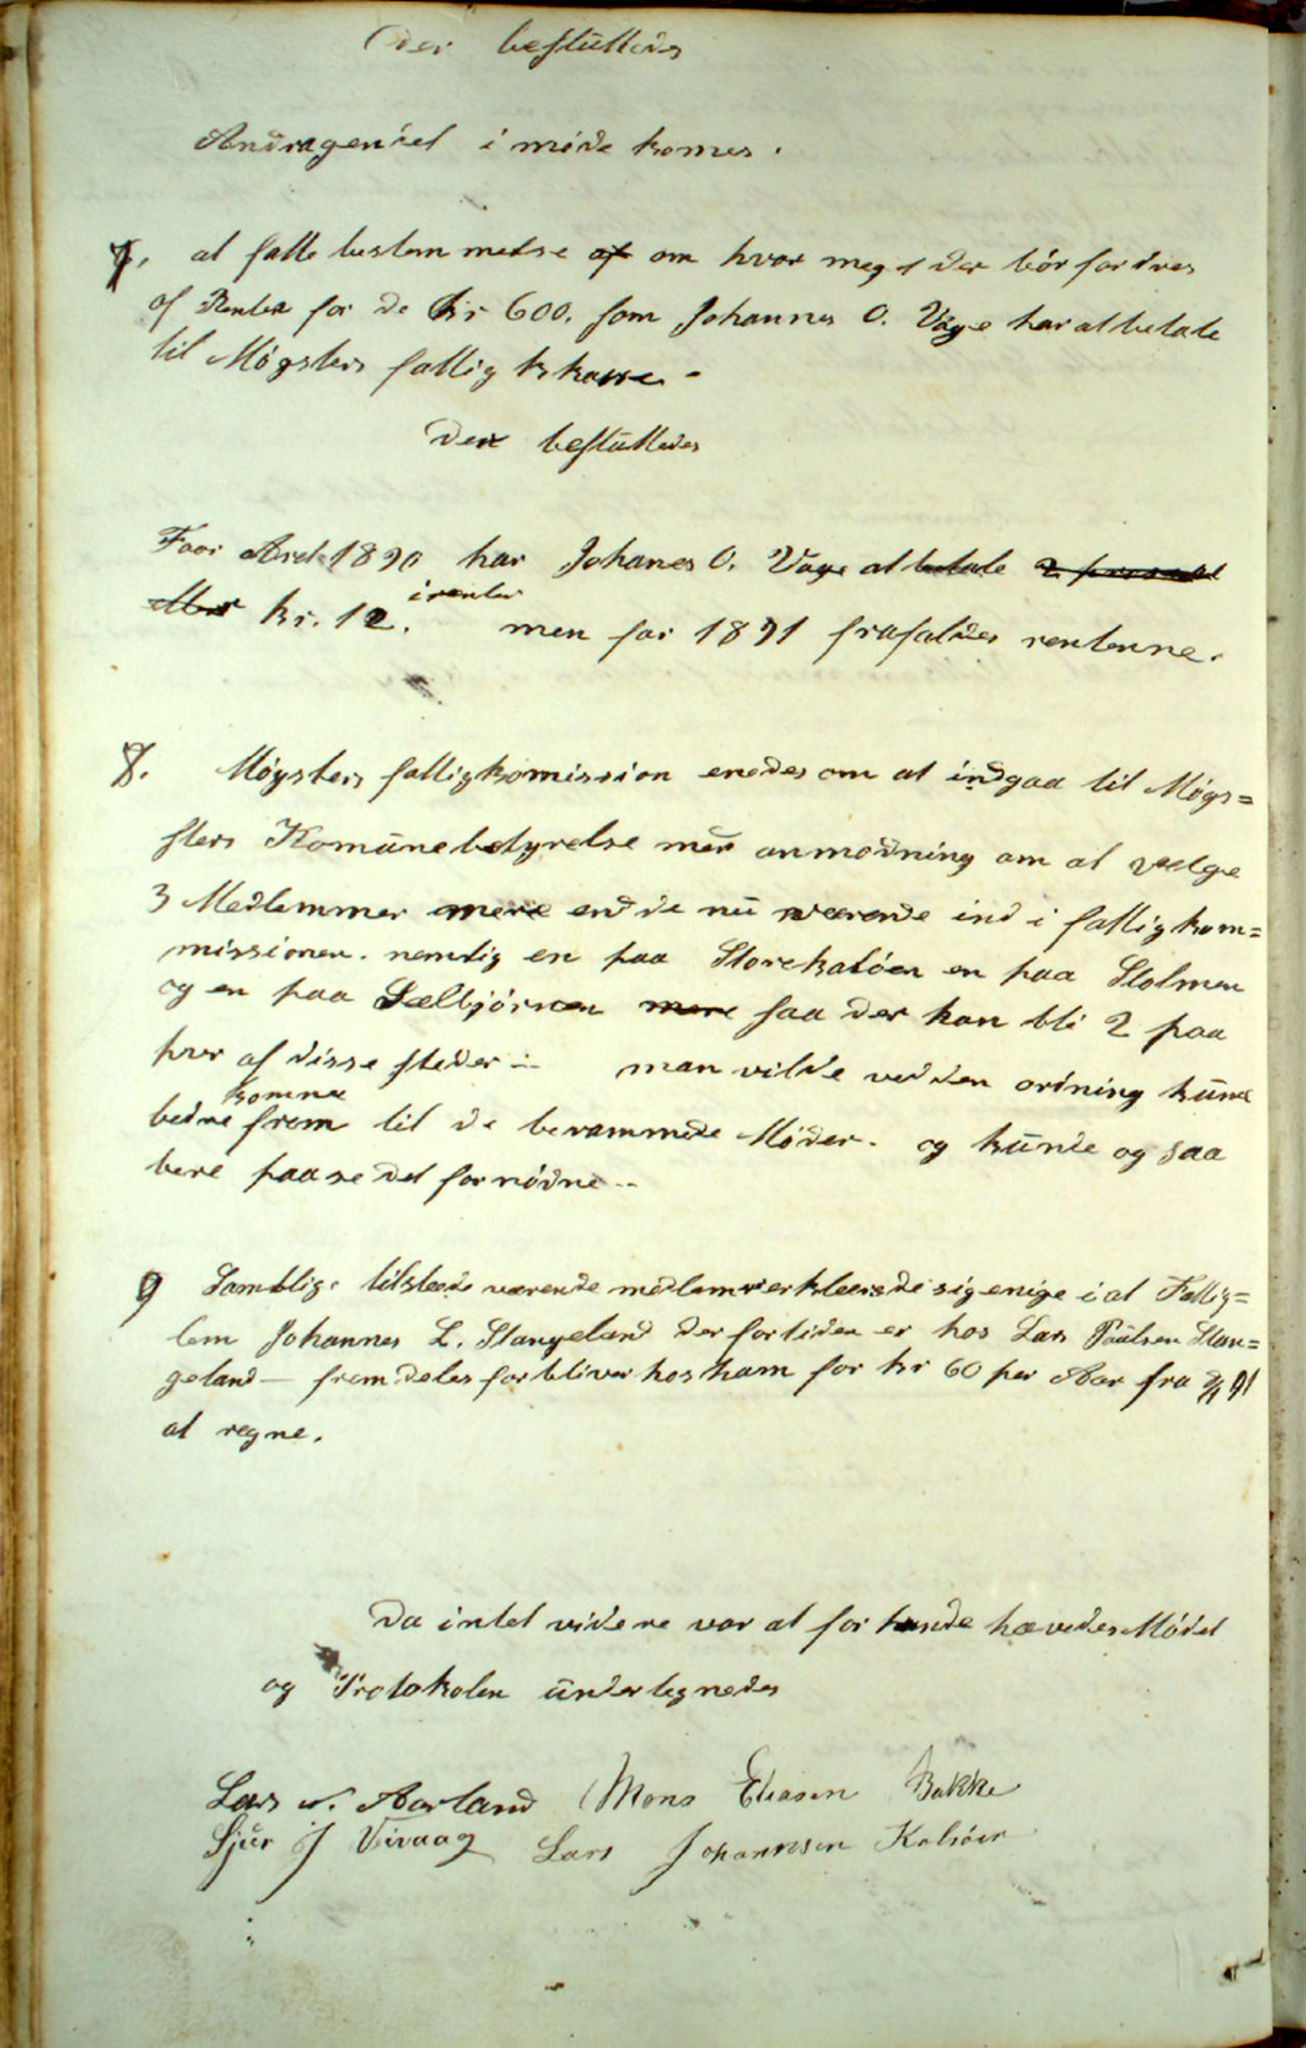 der besluttedes
Andragendet i møde komes.
7, at fatte bestemmelse af om hvor meget der bör fordres
af Renter for de Kr 600. som Johannes O. Våge har at betale
til Møgsters fattigkkasse -
der besluttedes
Foor Aret 1890 har Johanes O. Våge at betale 2 prosent
eller kr. 12. i renter men for 1891 frafaldes rentenne.
8. Møgsters fattigkomission enedes om at indgaa til Møgs=
sters Komünebetyrelse mer anmodning om at velge
3 Medlemmer mere end de nü værende ind i fattigkom=
missionen. nemlig en paa Storekalsöen en paa Stolmen
og en paa Sælbjörnen mere saa der kan bli 2 paa
hver af disse steder - man vilde ved den ordning küne
bedre komme frem til de berammede Møder. og künde og saa
bere paase det fornödne -
9 Samtlige tilstede værende medlemer erklærede sig enige i at Fattig=
lem Johannes L. Stangeland der fortiden er hos Lars Paülsen Stan=
geland - fremdeles forbliver hos ham for kr 60 per Aar fra 91
at regne.
Da intet videre var at for hande hævedes Mödet
og Protokolen ünderlegnedes
Lars N. Aarland Mons Eliasen Bakke
Sjür J Vivaag Lars Johannesen Kalsöen